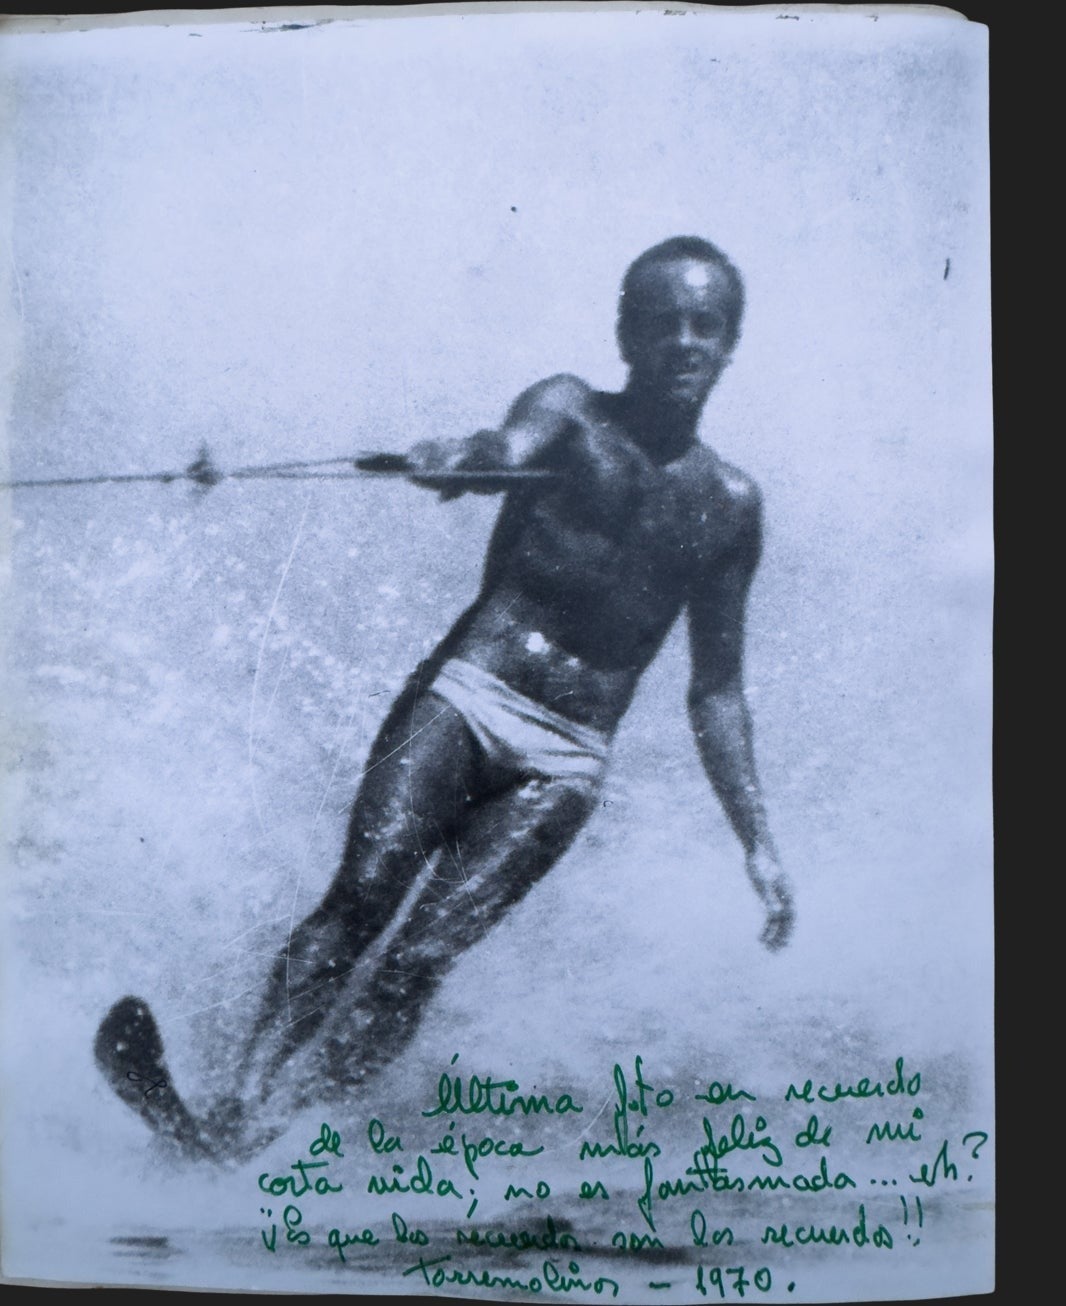 Última foto en recuerdo
de la época más feliz de mi
corta vida; no es fantasmada... eh?
¡¡Es que los recuerdos son los recuerdos!!
Torremolinos - 1970.